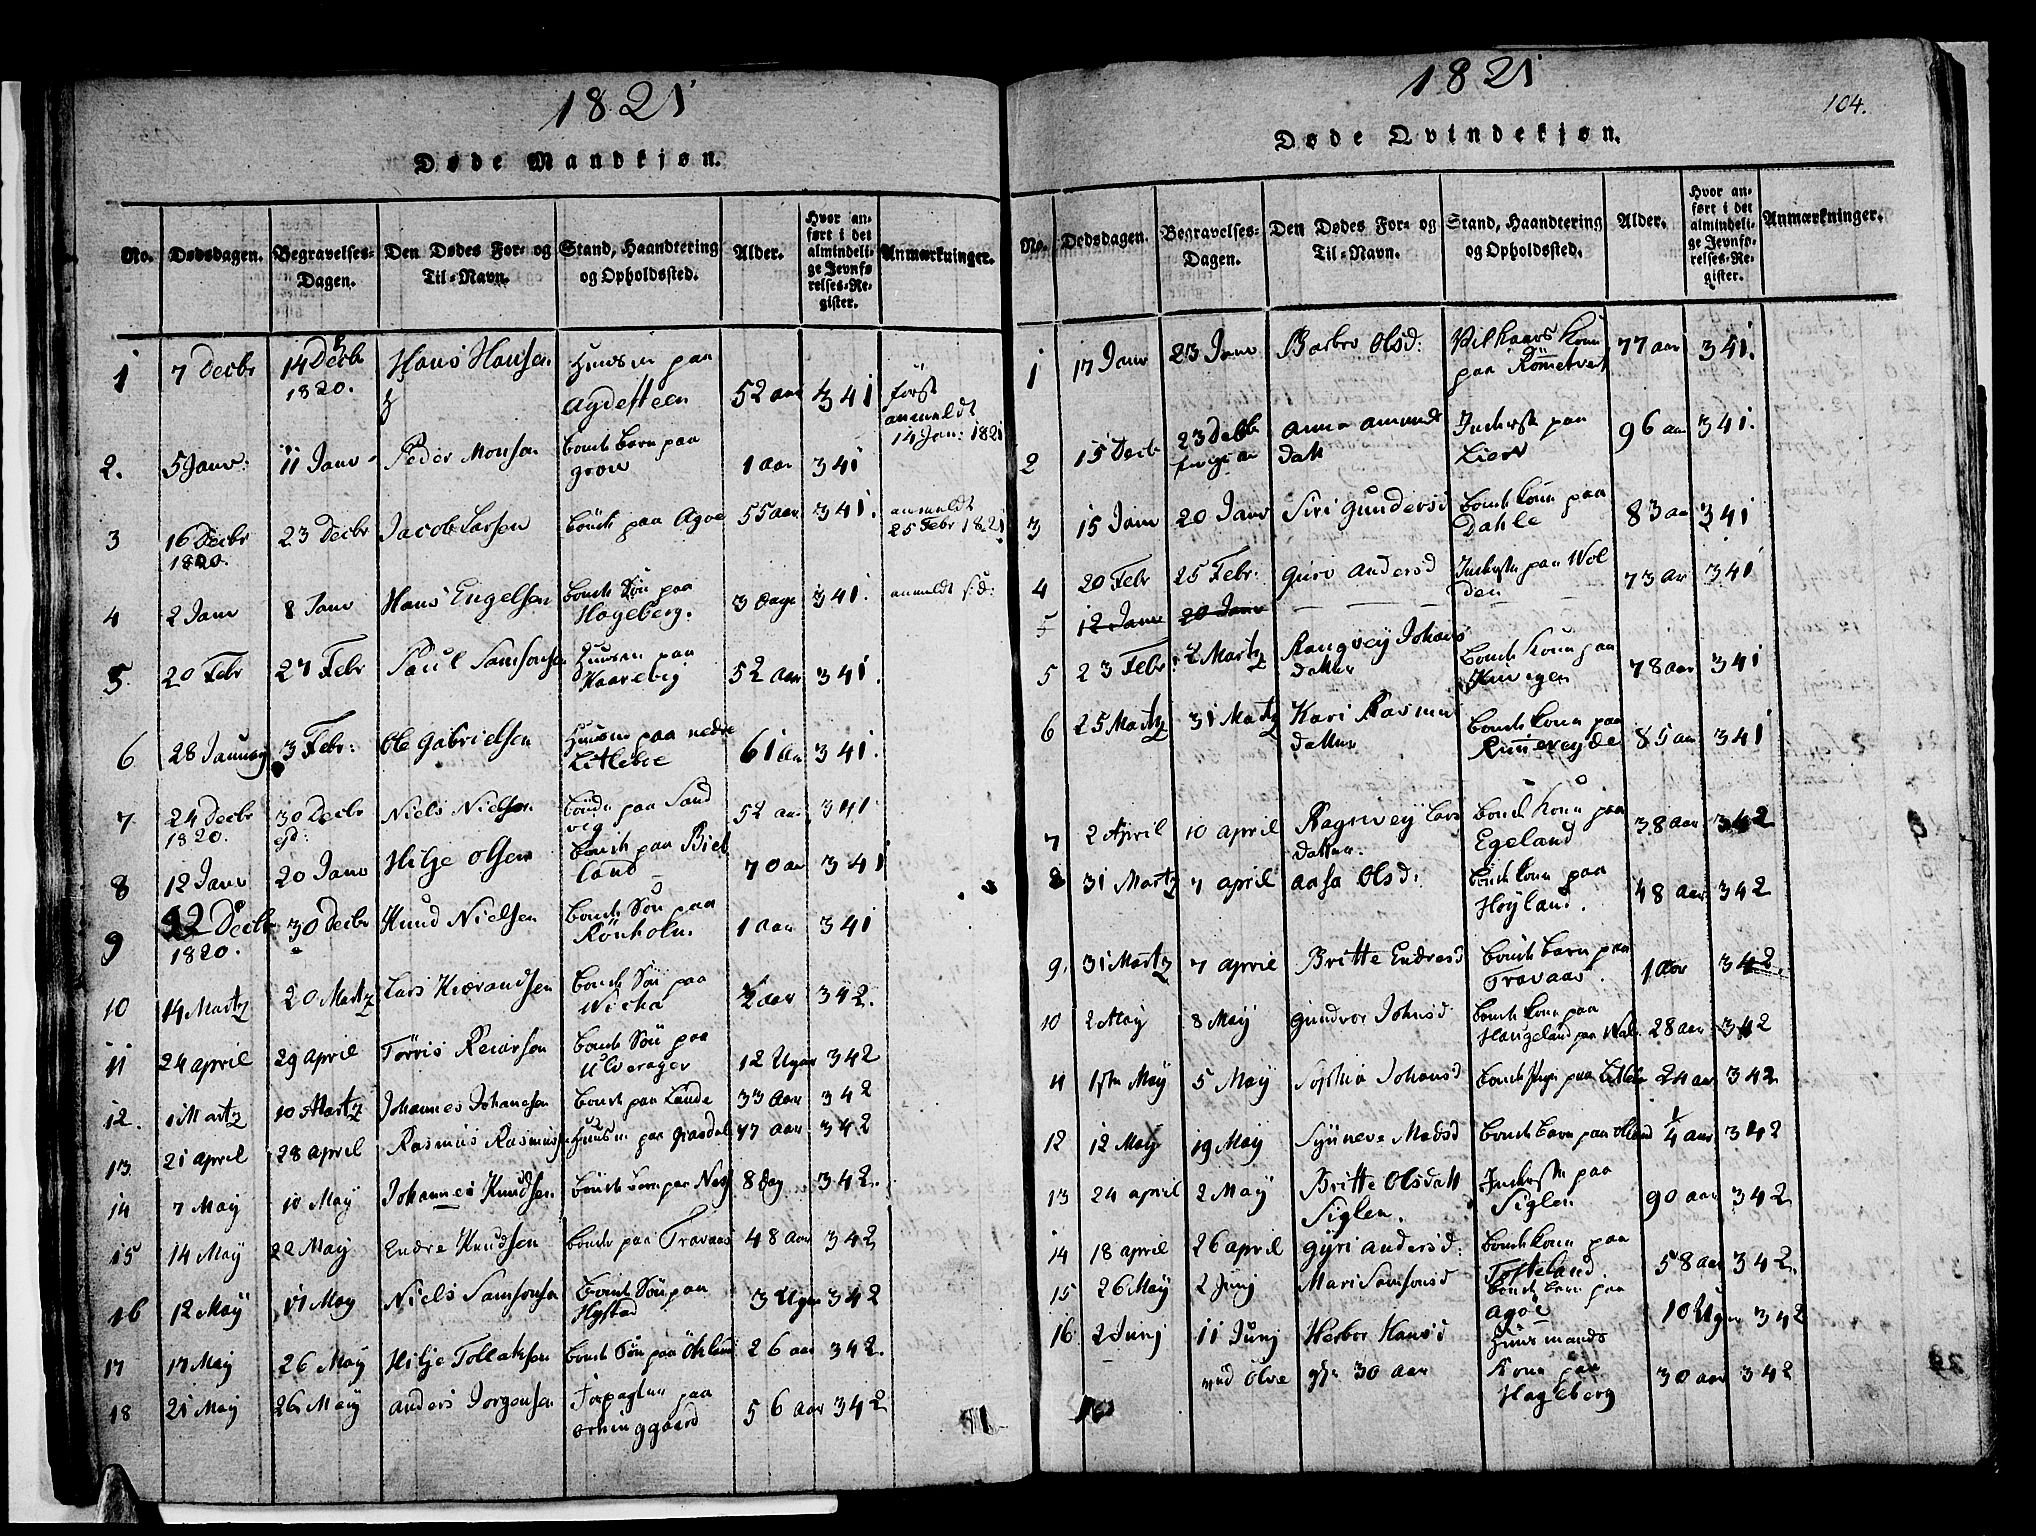 1821
Døde Mandkjøn.
No.
Dødsdagen.
Begravelses-Dagen.
Den Dødes For- og Til-Navn.
Stand, Haandtering og Opholdssted.
Alder.
Hvor anført i det almindelige Jevnførelses-Register.
Anmærkninger.
1 7 Decbr 14 Decbr 1820. Hans Hansen Huusm paa Agdesteen 52 aar 341 først anmeldt 14 Jan: 1821
2. 5 Janv: 11 Janv Peder Monsen bonde barn paa grov 1 aar 341
3 16 Decbr 1820. 23 Decbr Jacob Larsen bonde paa Agøe 55 aar 341. anmeldt 25 Febr 1821
4 2 Janv 8 Janv Hans Engelsen bonde Søn paa Hageberg. 3 Dage 341. anmeldt s: d:
5 20 Febr 27 Febr Paul Samsonsen Huusm paa Haarebig 52 aar 341.
6 28 Januarj 3 Febr: Ole Gabrielsen Huusm paa nedre Litleboe 61 aar 341.
7 24 Decbr 1820. 30 Decbr Niels Nielsen bonde paa Sandvig 52 aar 341
8 12 Janv 20 Janv Hilje Olsen bonde paa Bielland 70 aar 341
9 22 Decbr 1820. 30 Decbr Knud Nielsen bonde Søn paa Rönholm. 1 aar 341
10 14 Martz 20 Martz Lars bonde Søn paa aar 342.
11 24 april 29 april Törris Reiarsen bonde Søn paa Ulverager 12 Uger 342
12. 1 Martz 10 Martz Johannes Johanesen bonde paa Lande 33 aar 342
13 21 april 28 april Rasmus Rasmus Huusm paa Grasdal 77 aar 342
14 7 May 10 May Johannes Knudsen bonde barn paa Nes 8 Dag 342.
15 14 May 22 May Endre Knudsen bonde paa Travaas 48 aar 342
16 12 May 11 May Niels Samsonsen bonde Søn paa Hystad 3 Uger 342
17 17 May 26 May Hilje Tollaksen bonde Søn paa Økland 26 aar 342.
18 21 May 26 May anders Jorgensen Forpagter paa 56 aar 342
1821
104.
Døde Qvindekjøn.
No.
Dødsdagen.
Begravelses-Dagen.
Den Dødes For- og Til-Navn.
Stand, Haandtering og Opholdssted.
Alder.
Hvor anført i det almindelige Jevnførelses-Register.
Anmærkninger.
1 17 Janv 23 Janv Barbro Olsd: Vilkaars Kone paa Römetvet 77 aar 341.
2 15 Decb 23 Decbr anna amunds datt Inderste paa Lier 96 aar 341.
3 15 Janv 20 Janv Siri Gundersd bonde kone paa Dahle 83 aar 341
4 20 Febr 25 Febr: Guro andersd Inderste paa Wolden 73 aar 341
5 12 Janv 20 Janv
5 23 Febr: 2 Martz Rangvey Johans datter bonde Kone paa 78 aar 341
6 25 Martz 31 Martz Kari Rasmus datter bonde kone paa Rimereyde 85 aar 341
7 2 April 10 april Ragnvey Lars datter bonde Kone paa Egeland 38 aar 342
8 31 Martz 7 april aasa Olsd: bonde kone paa Høyland. 48 aar 342
9. 31 Martz 7 april Britte Endresd bonde barn paa Travaas. 1 aar 342.
10 2 May 8 May gundvor Johnsd bonde kone paa Haugeland 28 aar 342
11 1ste May 5 May Sophia Johansd bonde Pige paa 24 aar 342
12 12 May 19 May Synneve Madsd bonde barn paa 1/4 aar 342
13 24 april 2 May Britte Olsdatt Siglen. Inderste paa Siglen 90 aar 342
14 18 april 26 april Gyri andersd: bonde kone paa Tofteland 58 aar 342.
15 26 May 2 Junj Mari Samsonsd bonde barn paa agøe 10 Uger 342
16 2 Junj 11 Junj Herbor Hansd Huusmands Kone paa Hageberg 30 aar 342
ved Ølve 30 aar